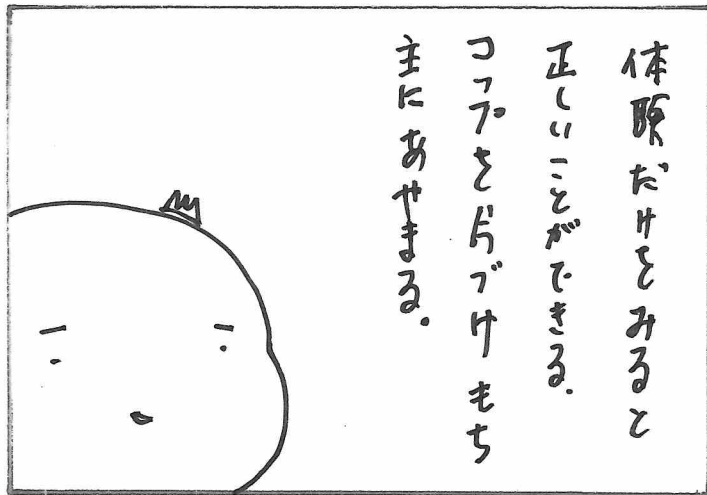 体験だけをみると
正しいことができる.
コップを片づけもち
主にあやまる.